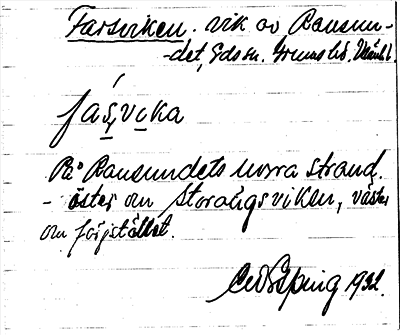 Farsviken. vik av Ransun-
-det, Eds sn.
fás̩vi̠ka
På Ransundets norra strand.
- öster om Storängsviken, väster
om färjstället.
1932.